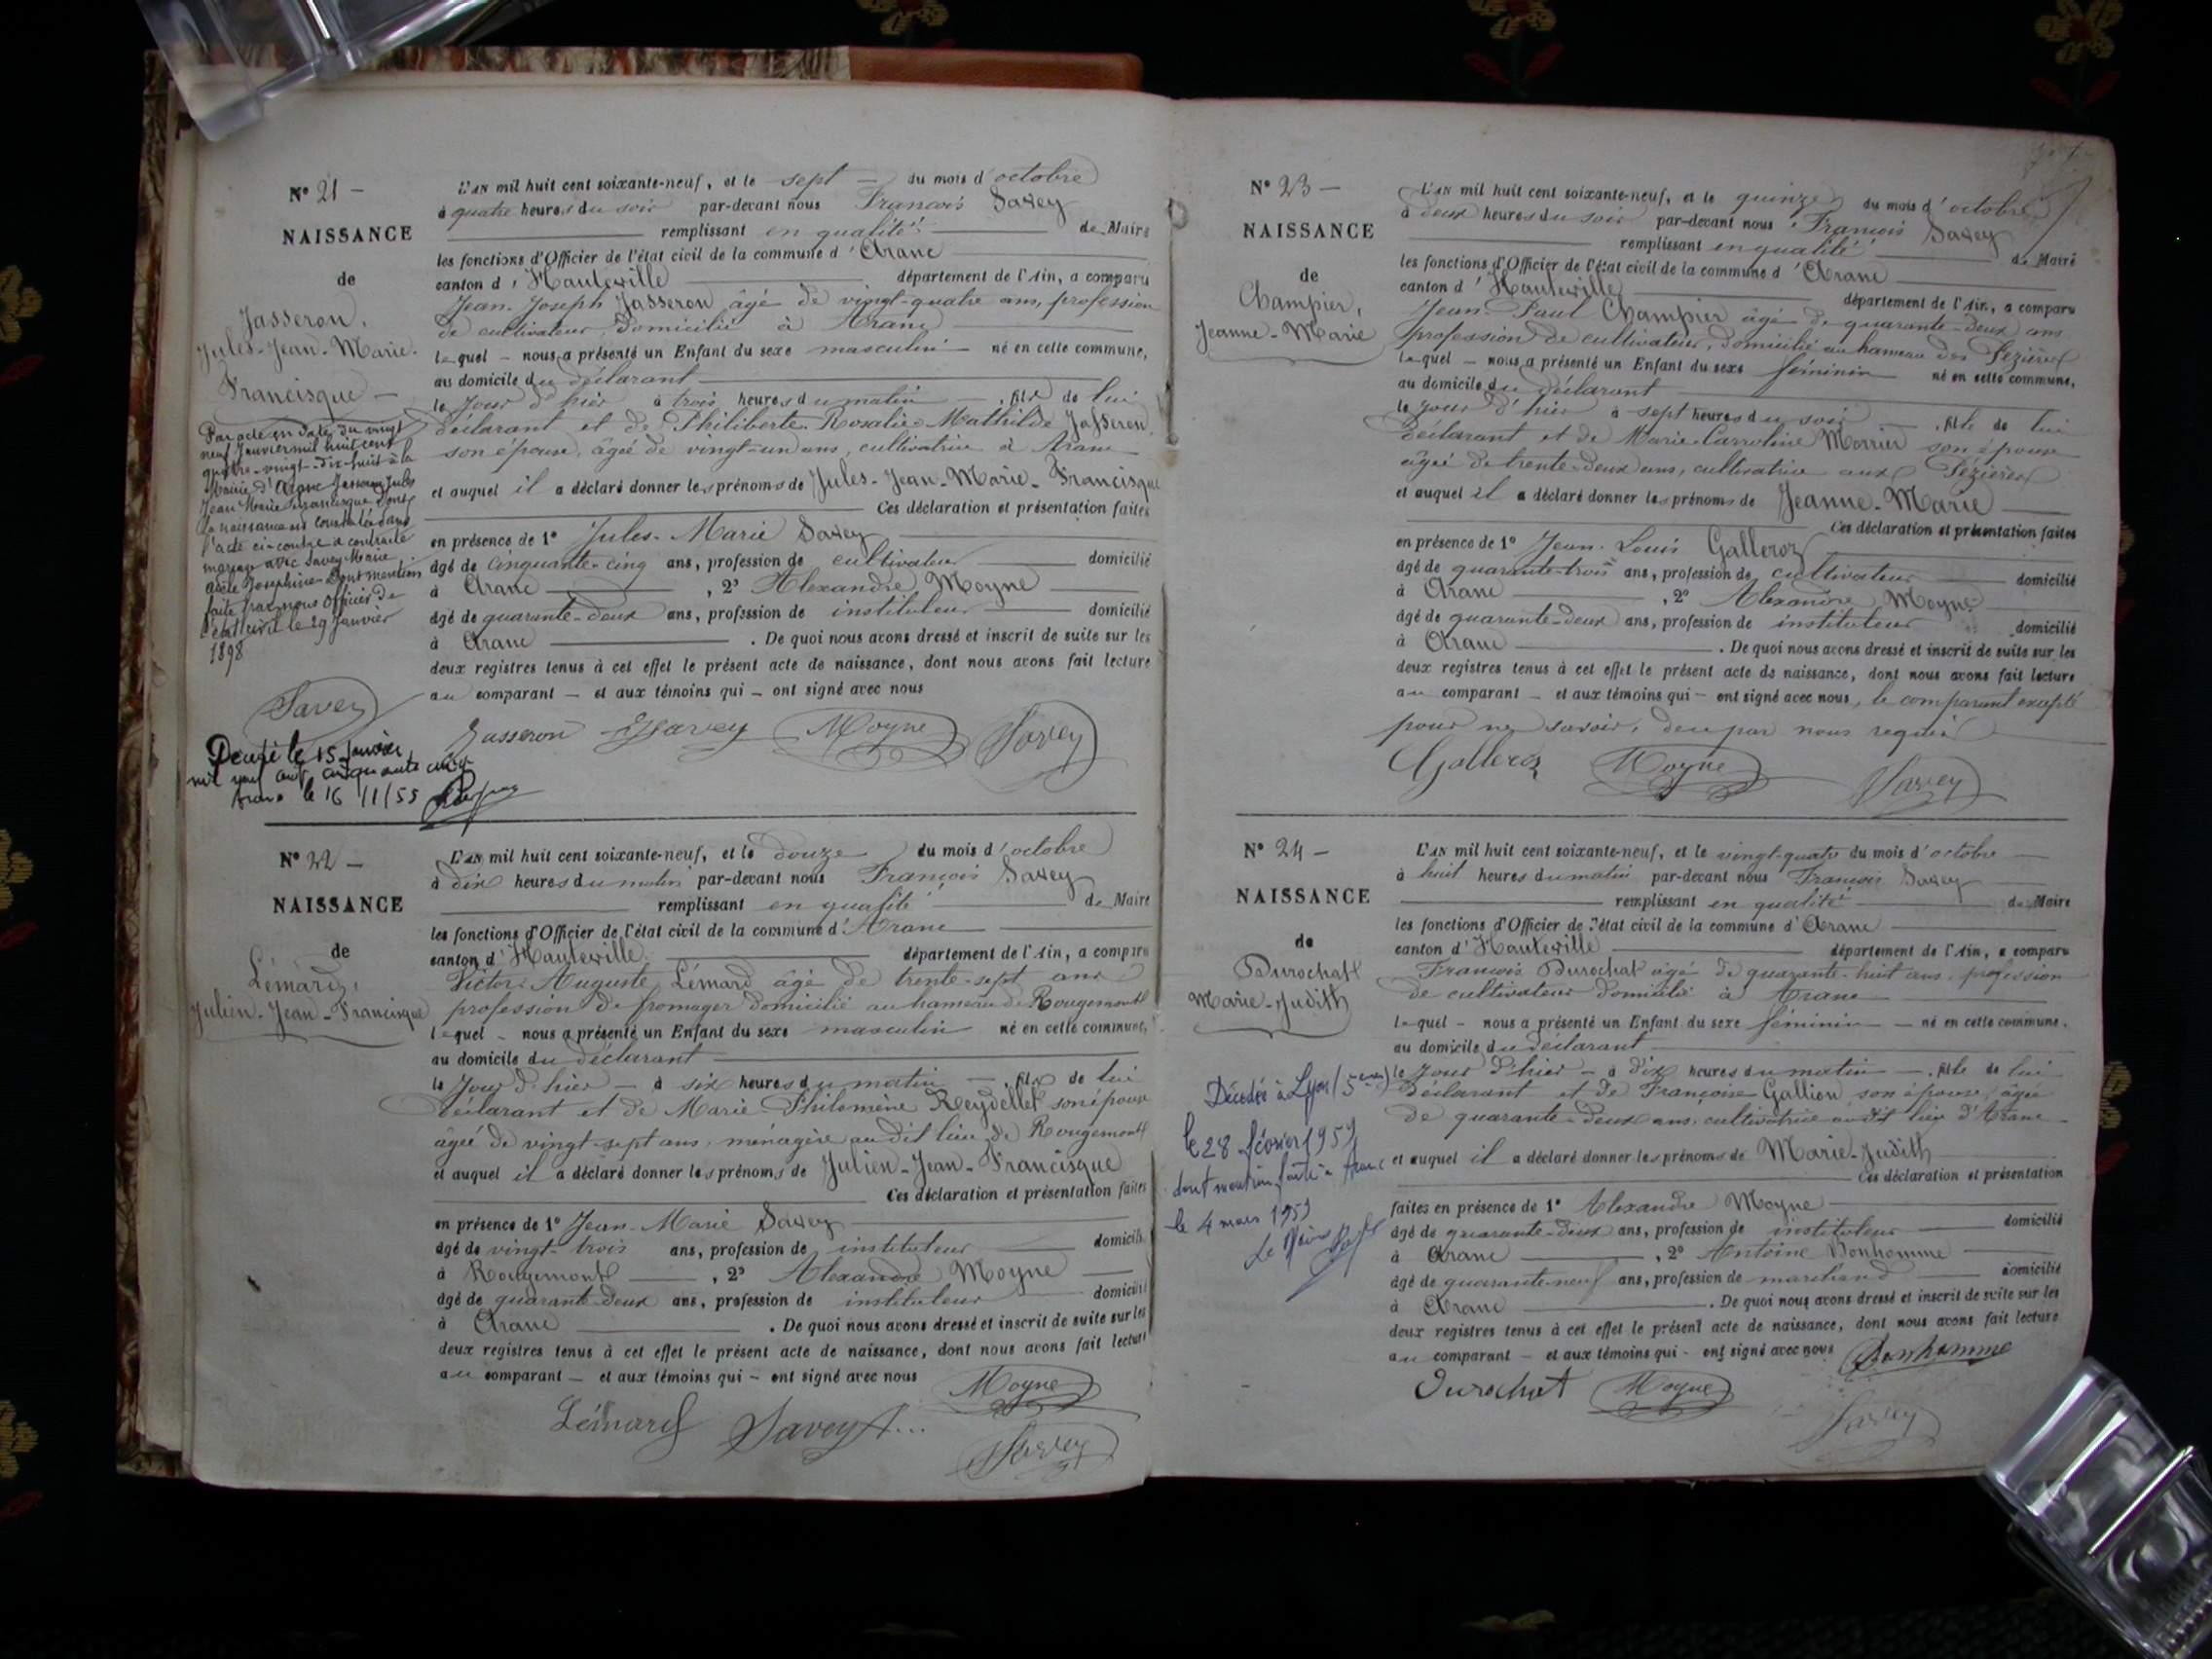 N° 21 —
NAISSANCE
de
Jasseron,
Jules-Jean-Marie-
Francisque —
Par acte en date du vingt
neuf Janvier mil huit cent
quatre-vingt-dix-huit à la
Mairie d'Aranc Jasseron Jules
Jean Marie Francisque dont
la naissance est constatée dans
l'acte ci-contre a contracté
mariage avec Savey Marie
Adèle Josephine - Dont mention
faite par nous Officier de
l'état civil le 29 Janvier
1898
Savey
Décédé le 15 Janvier
mil neuf cent cinquante cinq
Aranc le 16/1/55
L'AN mil huit cent soixante-neuf, et le sept — du mois d'octobre
à quatre heures du soir par-devant nous François Savey
remplissant en qualité de Maire
les fonctions d'Officier de l'état civil de la commune d'Aranc
canton d'Hauteville département de l'Ain, a comparu
Jean-Joseph Jasseron âgé de vingt-quatre ans, profession
de cultivateur, domicilié à Aranc
lequel — nous a présenté un Enfant du sexe masculin né en cette commune,
au domicile du déclarant
le jour d'hier à trois heures du matin —, fils de lui
déclarant et de Philiberte-Rosalie-Mathilde Jasseron
son épouse, âgée de vingt-un ans, cultivatrice à Aranc
et auquel il a déclaré donner les prénoms de Jules-Jean-Marie-Francisque
Ces déclaration et présentation faites
en présence de 1° Jules-Marie Savey
âgé de cinquante-cinq ans, profession de cultivateur domicilié
à Aranc, 2° Alexandre Moyne
âgé de quarante-deux ans, profession de instituteur domicilié
à Aranc. De quoi nous avons dressé et inscrit de suite sur les
deux registres tenus à cet effet le présent acte de naissance, dont nous avons fait lecture
au comparant — et aux témoins qui — ont signé avec nous
Jasseron Savey Moyne Savey
N° 22 —
NAISSANCE
de
Lémard,
Julien-Jean-Francisque
L'AN mil huit cent soixante-neuf, et le douze du mois d'octobre
à dix heures du matin par-devant nous François Savey
remplissant en qualité de Maire
les fonctions d'Officier de l'état civil de la commune d'Aranc
canton d'Hauteville département de l'Ain, a comparu
Victor-Auguste Lémard âgé de trente-sept ans
profession de fromager domicilié au hameau de Rougemont
lequel — nous a présenté un Enfant du sexe masculin né en cette commune,
au domicile du déclarant
le jour d'hier — à six heures du matin —, fils de lui
déclarant et de Marie-Philomène Reydellet son épouse
âgée de vingt-sept ans, ménagère audit lieu de Rougemont
et auquel il a déclaré donner les prénoms de Julien-Jean-Francisque
Ces déclaration et présentation faites
en présence de 1° Jean-Marie Savey
âgé de vingt-trois ans, profession de instituteur domicilié
à Rougemont, 2° Alexandre Moyne
âgé de quarante-deux ans, profession de instituteur domicilié
à Aranc. De quoi nous avons dressé et inscrit de suite sur les
deux registres tenus à cet effet le présent acte de naissance, dont nous avons fait lecture
au comparant — et aux témoins qui — ont signé avec nous Moyne
Lémard Savey
Savey
N° 23 —
NAISSANCE
de
Champier,
Jeanne-Marie
L'AN mil huit cent soixante-neuf, et le quinze du mois d'octobre
à deux heures du soir par-devant nous François Savey
remplissant en qualité de Maire
les fonctions d'Officier de l'état civil de la commune d'Aranc
canton d'Hauteville département de l'Ain, a comparu
Jean-Paul Champier âgé de quarante-deux ans
profession de cultivateur, domicilié au hameau des Pézières
lequel — nous a présenté un Enfant du sexe féminin né en cette commune,
au domicile du déclarant
le jour d'hier à sept heures du soir —, fille de lui
déclarant et de Marie-Carroline Morrier son épouse
âgée de trente-deux ans, cultivatrice aux Pézières
et auquel il a déclaré donner les prénoms de Jeanne-Marie
Ces déclaration et présentation faites
en présence de 1° Jean-Louis Galleroz
âgé de quarante-trois ans, profession de cultivateur domicilié
à Aranc, 2° Alexandre Moyne
âgé de quarante-deux ans, profession de instituteur domicilié
à Aranc. De quoi nous avons dressé et inscrit de suite sur les
deux registres tenus à cet effet le présent acte de naissance, dont nous avons fait lecture
au comparant — et aux témoins qui — ont signé avec nous, le comparant excepté
pour ne savoir, de ce par nous requis
Galleroz Moyne Savey
N° 24 —
NAISSANCE
de
Durochat
Marie-Judith
Décédée à Lyon (5ème)
le 28 février 1959
dont mention faite à Aranc
le 4 mars 1959
Le Maire
L'AN mil huit cent soixante-neuf, et le vingt-quatre du mois d'octobre
à huit heures du matin par-devant nous François Savey
remplissant en qualité de Maire
les fonctions d'Officier de l'état civil de la commune d'Aranc
canton d'Hauteville département de l'Ain, a comparu
François Durochat âgé de quarante-huit ans, profession
de cultivateur domicilié à Aranc
lequel — nous a présenté un Enfant du sexe féminin — né en cette commune,
au domicile du déclarant
le jour d'hier — à dix heures du matin —, fille de lui
déclarant et de Françoise Gallion son épouse, âgée
de quarante-deux ans, cultivatrice au dit lieu d'Aranc
et auquel il a déclaré donner les prénoms de Marie-Judith
Ces déclaration et présentation
faites en présence de 1° Alexandre Moyne
âgé de quarante-deux ans, profession de instituteur domicilié
à Aranc, 2° Antoine Bonhomme
âgé de quarante-neuf ans, profession de marchand domicilié
à Aranc. De quoi nous avons dressé et inscrit de suite sur les
deux registres tenus à cet effet le présent acte de naissance, dont nous avons fait lecture
au comparant — et aux témoins qui - ont signé avec nous Bonhomme
Durochat Moyne
Savey